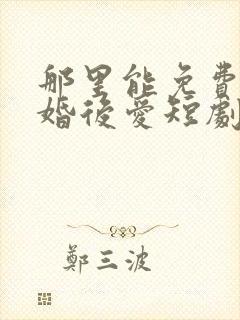 那里能免費
婚後愛短劇
鄭三波